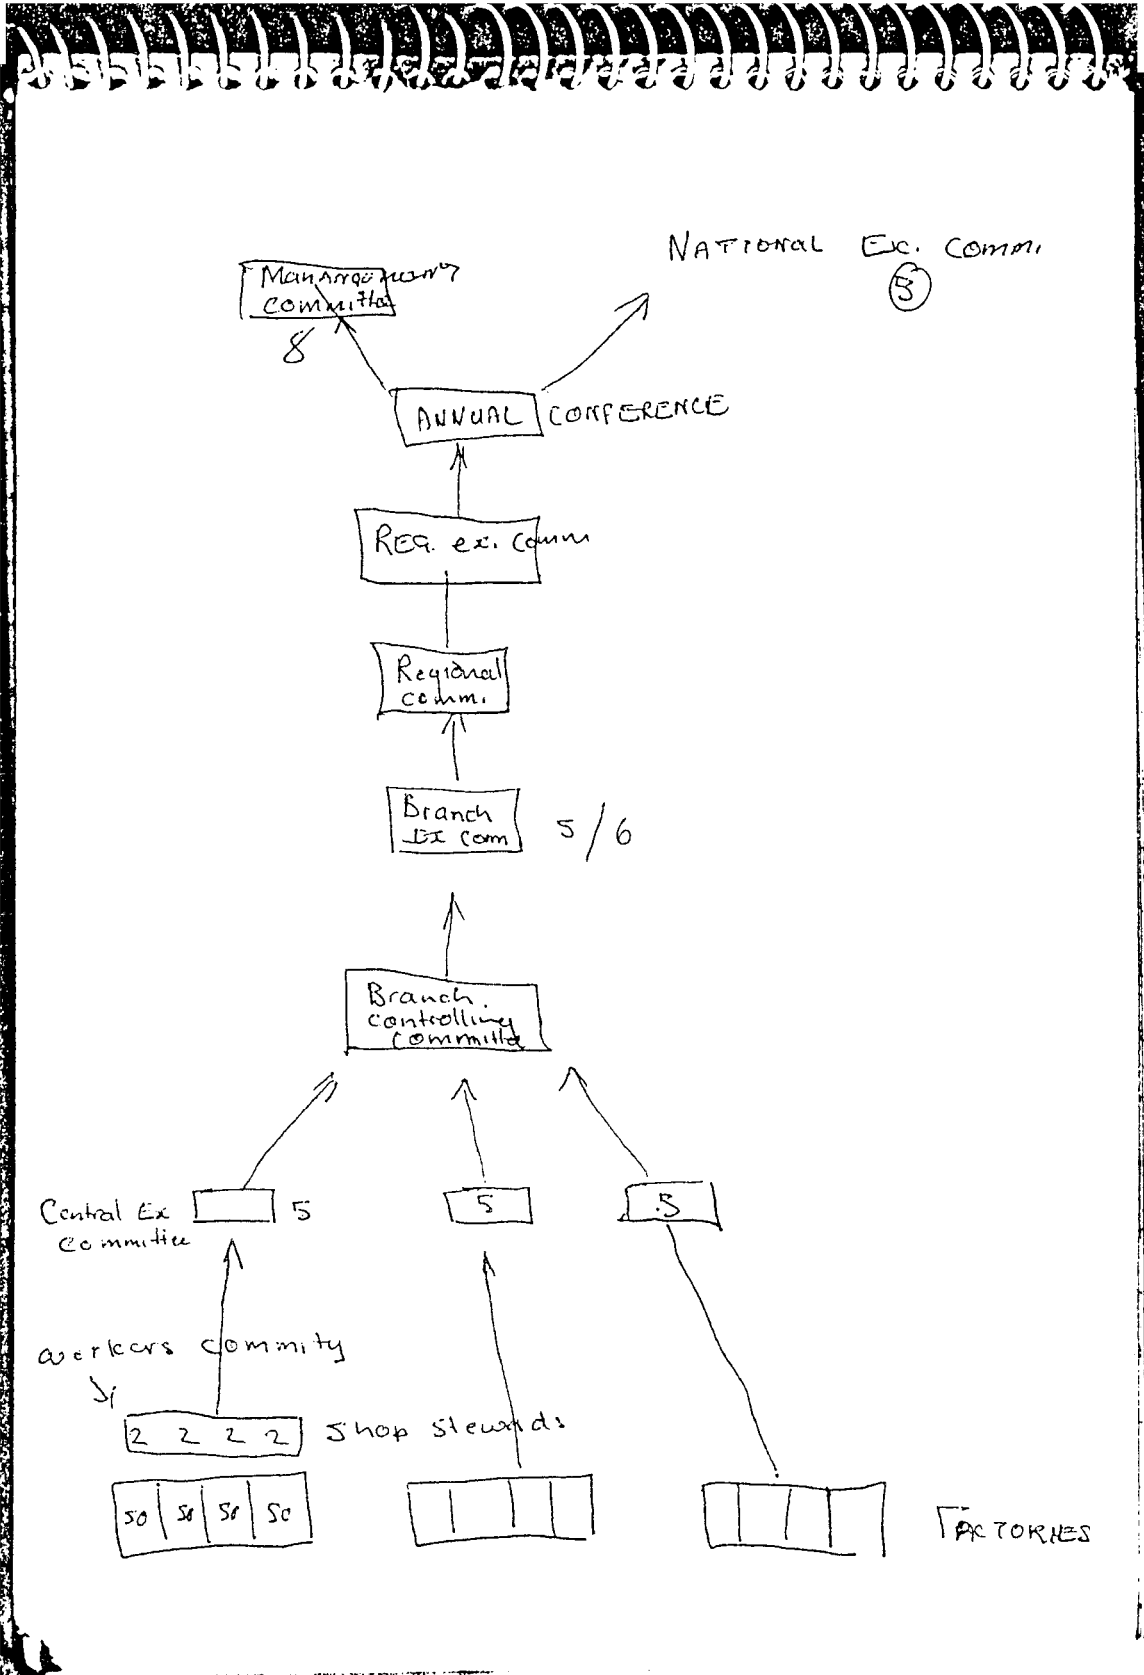 NATIONAL Ex. Comm.
committee
8
5
ANNUAL CONFERENCE
REG. ex. comm
Regional
comm.
Branch
Ex com 5/6
Branch
controlling
committe
Central Ex 5 5 5
committee
workers commity
2 2 2 2 Shop stewards
50 50 50 50
FACTORIES